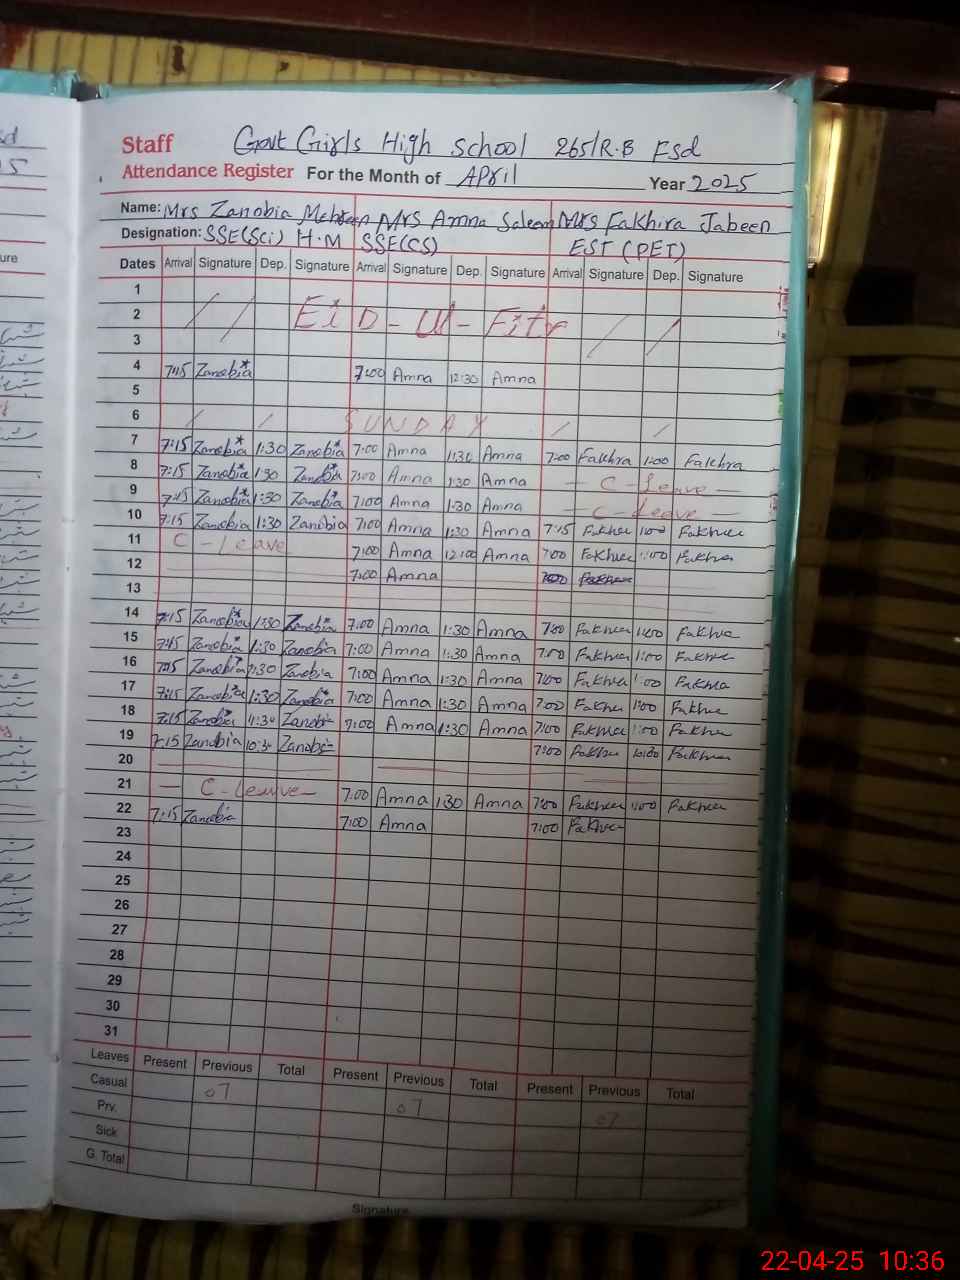 Staff Govt Girls High School 265/R.B Fsd
Attendance Register For the Month of April Year 2025
Name: Mrs Zanobia Mehreen Mrs Amna Saleem Mrs Fakhira Jabeen
Designation: SSE(Sci) H.M SSE(CS) EST (PET)
Dates Arrival Signature Dep. Signature Arrival Signature Dep. Signature Arrival Signature Dep. Signature
1
2 EiD-Ul-Fitr
3
4 7:15 Zanobia* 7:00 Amna 12:30 Amna
5
6 SUNDAY
7 7:15 Zanobia* 1:30 Zanobia* 7:00 Amna 1:30 Amna 7:00 Fakhra 1:00 Fakhra
8 7:15 Zanobia* 1:30 Zanobia* 7:00 Amna 1:30 Amna - C-Leave -
9 7:15 Zanobia* 1:30 Zanobia* 7:00 Amna 1:30 Amna - C-Leave -
10 7:15 Zanobia 1:30 Zanobia 7:00 Amna 1:30 Amna 7:15 Fakhra 1:00 Fakhra
11 C-Leave 7:00 Amna 12:00 Amna 7:00 Fakhra Fakhra
12 7:00 Amna 7:00 Fakhra
13
14 7:15 Zanobia* 1:30 Zanobia* 7:00 Amna 1:30 Amna 7:00 Fakhra 1:00 Fakhra
15 7:15 Zanobia* 1:30 Zanobia 7:00 Amna 1:30 Amna 7:00 Fakhra 1:00 Fakhra
16 7:15 Zanobia* 1:30 Zanobia 7:00 Amna 1:30 Amna 7:00 Fakhra 1:00 Fakhra
17 7:15 Zanobia* 1:30 Zanobia* 7:00 Amna 1:30 Amna 7:00 Fakhra 1:00 Fakhra
18 7:15 Zanobia* 11:30 Zanobia 7:00 Amna 11:30 Amna 7:00 Fakhra 1:00 Fakhra
19 7:15 Zanobia 10:30 Zanobia 7:00 Fakhra 10:00 Fakhra
20
21 - C-Leave - 7:00 Amna 1:30 Amna 7:00 Fakhra 1:00 Fakhra
22 7:15 Zanobia 7:00 Amna 7:00 Fakhra
23
24
25
26
27
28
29
30
31
Leaves Present Previous Total Present Previous Total Present Previous Total
Casual 07 07 07
Prv.
Sick
G. Total
Signature
22-04-25 10:36